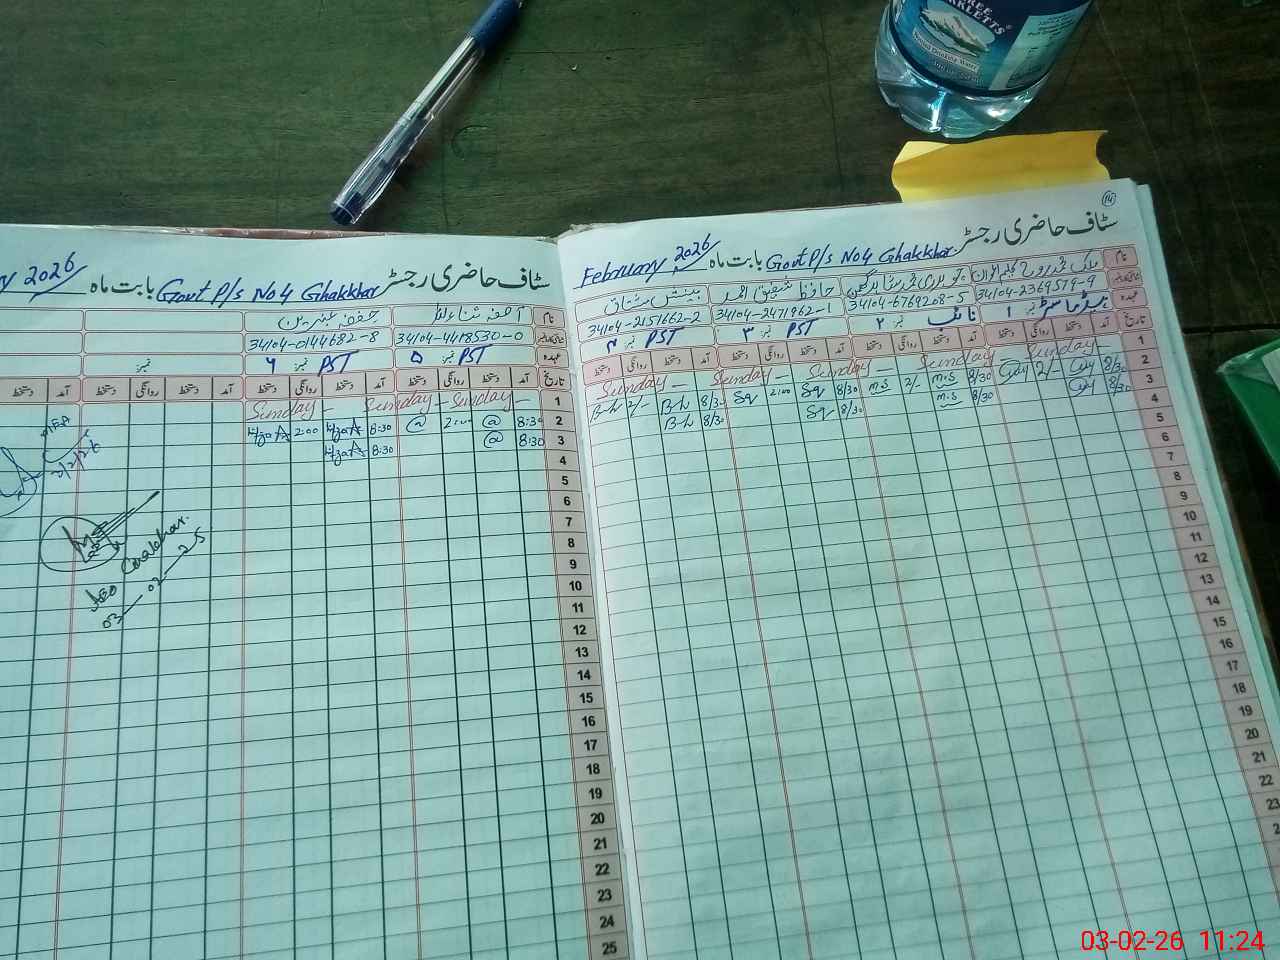 THREE STARLETTS
Drinking Water
14
سٹاف حاضری رجسٹر بابت ماہ Govt P/s No 4 Ghakkhar February 2026
نام
حافظ شفیق احمد
بینش مشتاق
34104-2369579-9
34104-6769208-5
34104-2471962-1
34104-2151662-2
عہدہ ہیڈ ماسٹر نمبر ۱
نائب نمبر ۲
PST نمبر ۳
PST نمبر ۴
تاریخ آمد دستخط روانگی دستخط آمد دستخط روانگی دستخط آمد دستخط روانگی دستخط آمد دستخط روانگی دستخط
1 Sunday — Sunday — Sunday — Sunday —
2 8/30 2/- 8/30 M.S 2/- M.S 8/30 Sq 2:00 Sq 8/30 B-h 2/- B-h
3 8/30 8/30 M.S 8/30 Sq 8/30 B-h
4
5
6
7
8
9
10
11
12
13
14
15
16
17
18
19
20
21
22
23
سٹاف حاضری رجسٹر بابت ماہ Govt P/s No 4 Ghakkhar y 2026
نام آصفہ ثناء اللہ
حفصہ عنبرین
34104-4418530-0
34104-0144682-8
عہدہ PST نمبر ۵
PST نمبر ۶
نمبر
تاریخ آمد دستخط روانگی دستخط آمد دستخط روانگی دستخط آمد دستخط روانگی دستخط آمد
1 Sunday — Sunday — Sunday —
2 8:30 @ 2:00 @ 8:30 2:00
3 8:30 @ 8:30
4
5
6
7
8
9
10
11
12
13
14
15
16
17
18
19
20
21
22
23
24
25
3/2/26
AEO Ghakkhar.
03-02-25
03-02-26 11:24